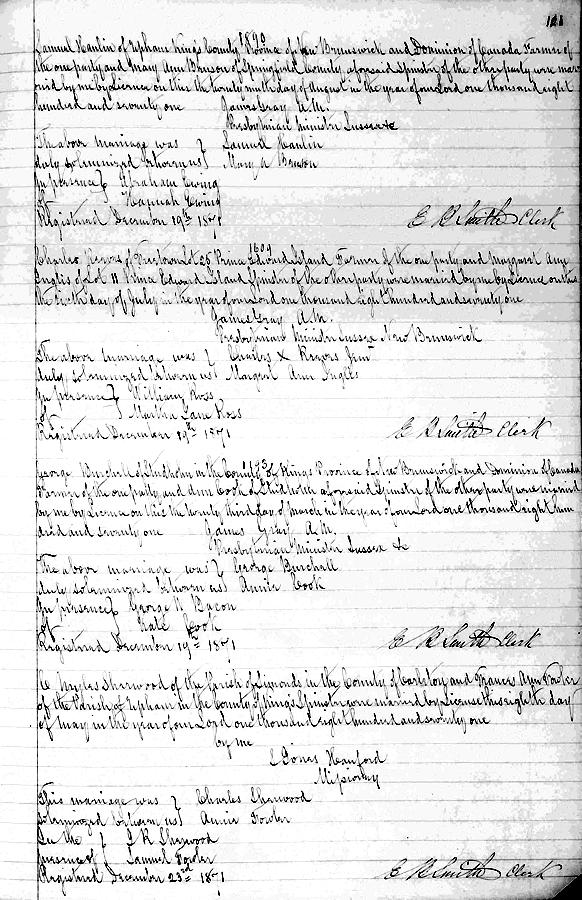 121
1890
Samuel Hanlin of Upham Kings County Province of New Brunswick and Dominion of Canada Farmer of
the one party and Mary Ann Benson of Springfield County aforesaid Spinster of the other party were mar
ried by me by License on this the twenty ninth day of August in the year of our Lord one thousand eight
hundred and seventy one James Gray A.M.
Presbyterian Minister Sussex &c
The above marriage was } Samuel Hanlin
duly solemnized between us } Mary A
In presence } Abraham Ewing
of } Hannah Ewing
Registered December 19th 1871
E B Smith Clerk
Charles of Freetown Lot 25 Prince Edward Island Farmer of the one party and Margaret Ann
Inglis of Lot 11 Prince Edward Island Spinster of the other party were married by me by License on this
the day of July in the year of our Lord one thousand eight hundred and seventy one
James Gray A.M.
Presbyterian Minister Sussex New Brunswick
The above marriage was } Charles X
duly solemnized between us } Margret Ann Ingles
In presence } William Ross
of } Martha Jane Ross
Registered December 19th 1871
E B Smith Clerk
George Burchell of Studholm in the County of Kings Province of New Brunswick and Dominion of Canada
Farmer of the one party and Ann Cook of Studholm aforesaid Spinster of the other party were married
by me by License on this the twenty third day of March in the year of our Lord one thousand eight hun
dred and seventy one James Gray A.M.
Presbyterian Minister Sussex &c
The above marriage was } George Burchell
duly solemnized between us } Annie Cook
In presence } George N Bacon
of } Kate Cook
Registered December 19th 1871
E B Smith Clerk
C Sherwood of the Parish of Simonds in the County of Carleton and Frances Ann Fowler
of the Parish of Upham in the County of Kings Spinster were married by License this eighth day
of May in the year of our Lord one thousand eight hundred and seventy one
by me
S Jones Hanford
Missionary
This marriage was } Charles Sherwood
solemnized between us } Annie Fowler
In the } J R Sherwood
presence of } Samuel Fowler
Registered December 23rd 1871
E B Smith Clerk